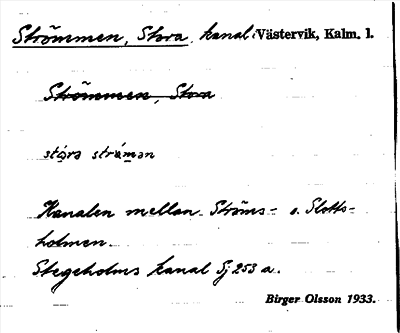 Strömmen, Stora, kanal Västervik, Kalm. l.
Strömmen, Stora
stóra strǿmən
Kanalen mellan Ströms- o. Slotts-
holmen.
Stegeholms kanal Sj 253 a.
Birger Olsson 1933.